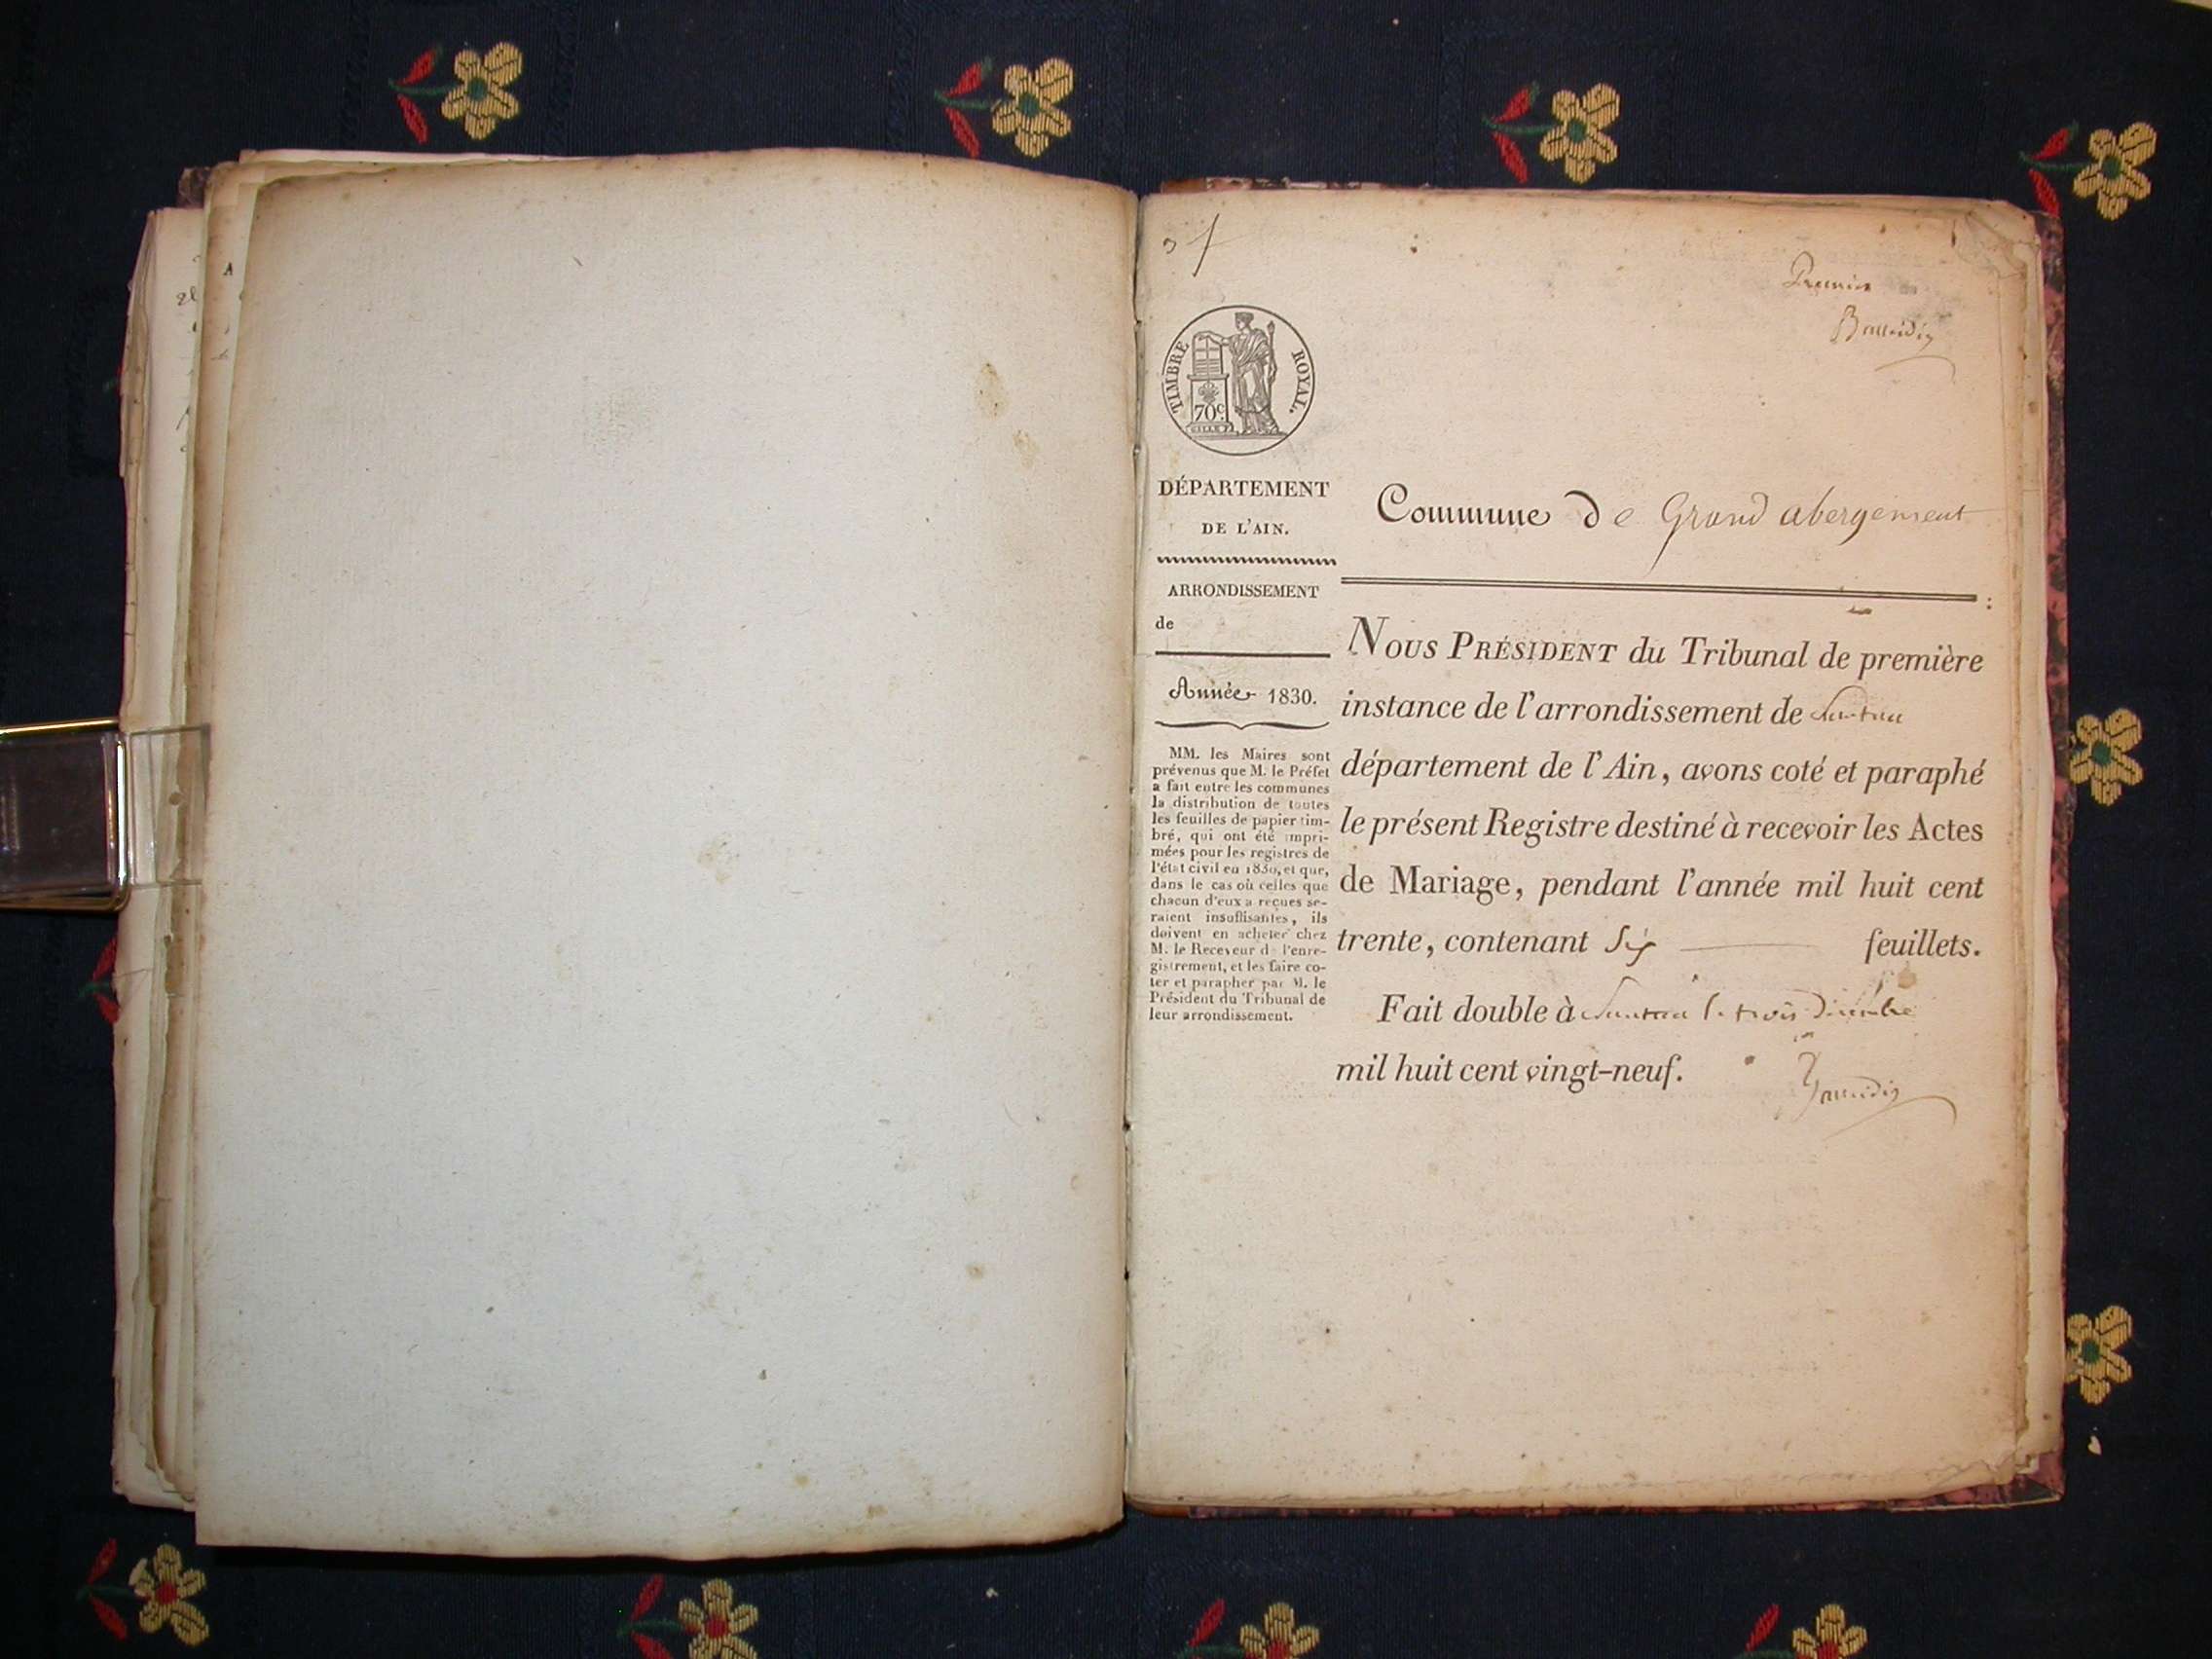 Premier
TIMBRE ROYAL.
70c.
DÉPARTEMENT
DE L'AIN.
Commune de Grand abergement
ARRONDISSEMENT
de
Année 1830.
MM. les Maires sont
prévenus que M. le Préfet
a fait entre les communes
la distribution de toutes
les feuilles de papier tim-
bré, qui ont été impri-
mées pour les registres de
l'état civil en 1830, et que,
dans le cas où celles que
chacun d'eux a reçues se-
raient insuffisantes, ils
doivent en acheter chez
M. le Receveur de l'enre-
gistrement, et les faire co-
ter et parapher par M. le
Président du Tribunal de
leur arrondissement.
NOUS PRÉSIDENT du Tribunal de première
instance de l'arrondissement de Nantua
département de l'Ain, avons coté et paraphé
le présent Registre destiné à recevoir les Actes
de Mariage, pendant l'année mil huit cent
trente, contenant Six feuillets.
Fait double à Nantua le trois Décembre
mil huit cent vingt-neuf.